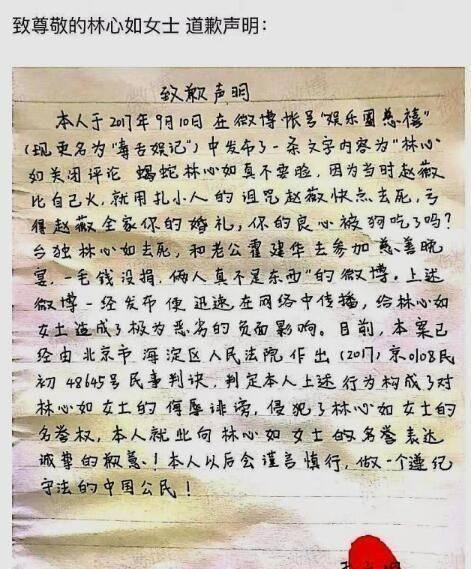 致尊敬的林心如女士 道歉声明：
致歉声明
本人于2017年9月10日在微博帐号“娱乐圈慈禧”
(现更名为“尊古娱记”)中发布了一条文字内容为“林心
如关闭评论 蝎蛇林心如真不要脸，因为当时赵薇
比自己火，就用扎小人的诅咒赵薇快点去死，亏
得赵薇全家你的婚礼，你的良心被狗吃了吗？
台独林心如去死，和老公霍建华去参加慈善晚
宴，一毛钱没捐，俩人真不是东西”的微博。上述
微博一经发布便迅速在网络中传播，给林心如
女士造成了极为恶劣的负面影响。目前，本案已
经由北京市海淀区人民法院作出(2017)京0108民
初48645号民事判决，判定本人上述行为构成了对
林心如女士的侮辱诽谤，侵犯了林心如女士的
名誉权，本人就此向林心如女士的名誉表达
诚挚的歉意！本人以后会谨言慎行，做一个遵纪
守法的中国公民！